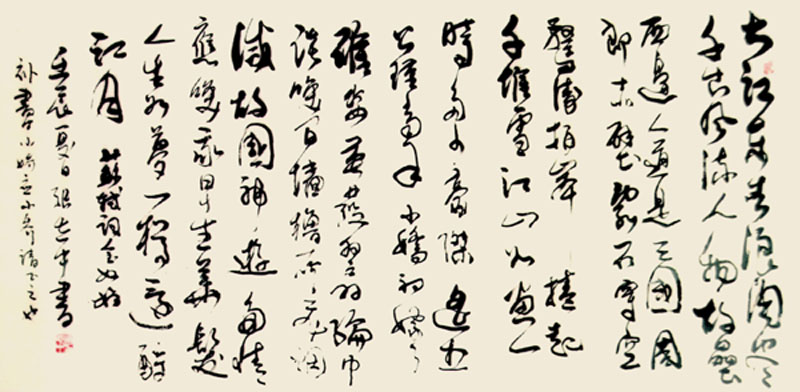 大江東去浪淘盡
千古風流人物故壘
西邊人道是三國周
郎赤壁亂石穿空
驚濤拍岸捲起
千堆雪江山如畫一
時多少豪傑遥想
公瑾當年小嬌初嫁了
雄姿英發羽扇綸巾
談笑間檣櫓灰飛煙
滅故國神遊多情
應笑我早生華髮
人生如夢一樽還酹
江月 蘇軾詞念奴
壬辰夏日張書
补書小嬌小喬也